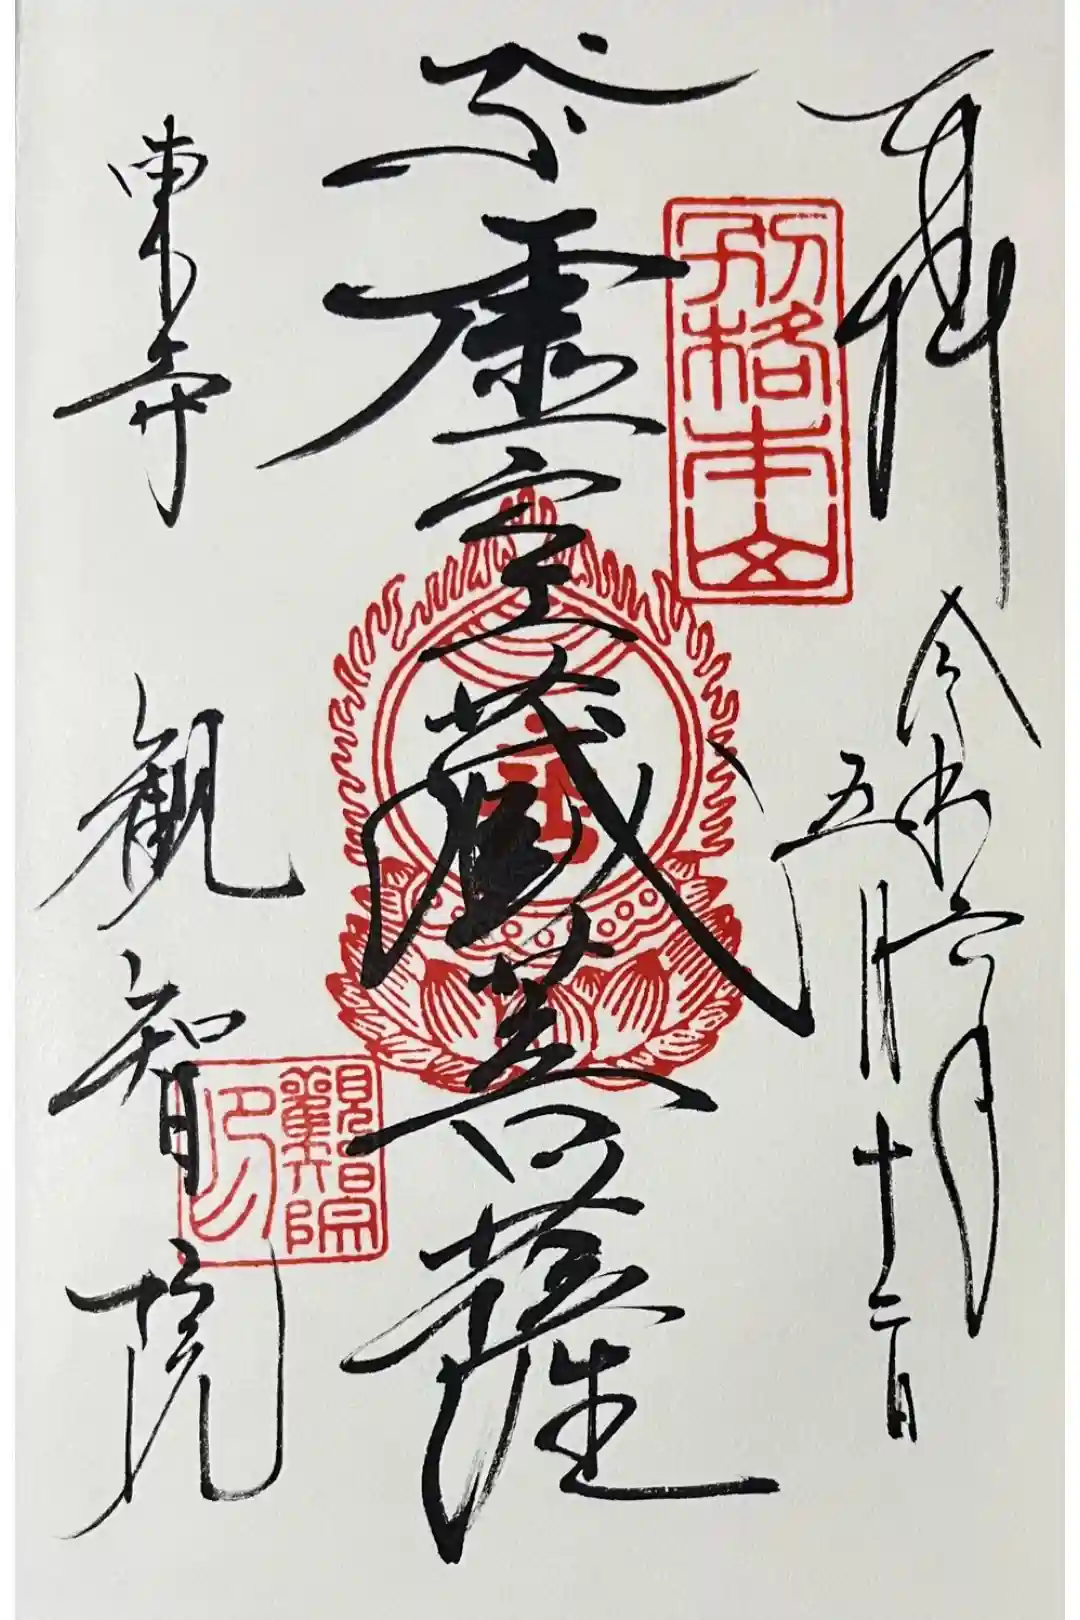 奉拝
令和六年
五月十二日
別格本山
五大虚空蔵菩薩
東寺
観智院
觀智院印